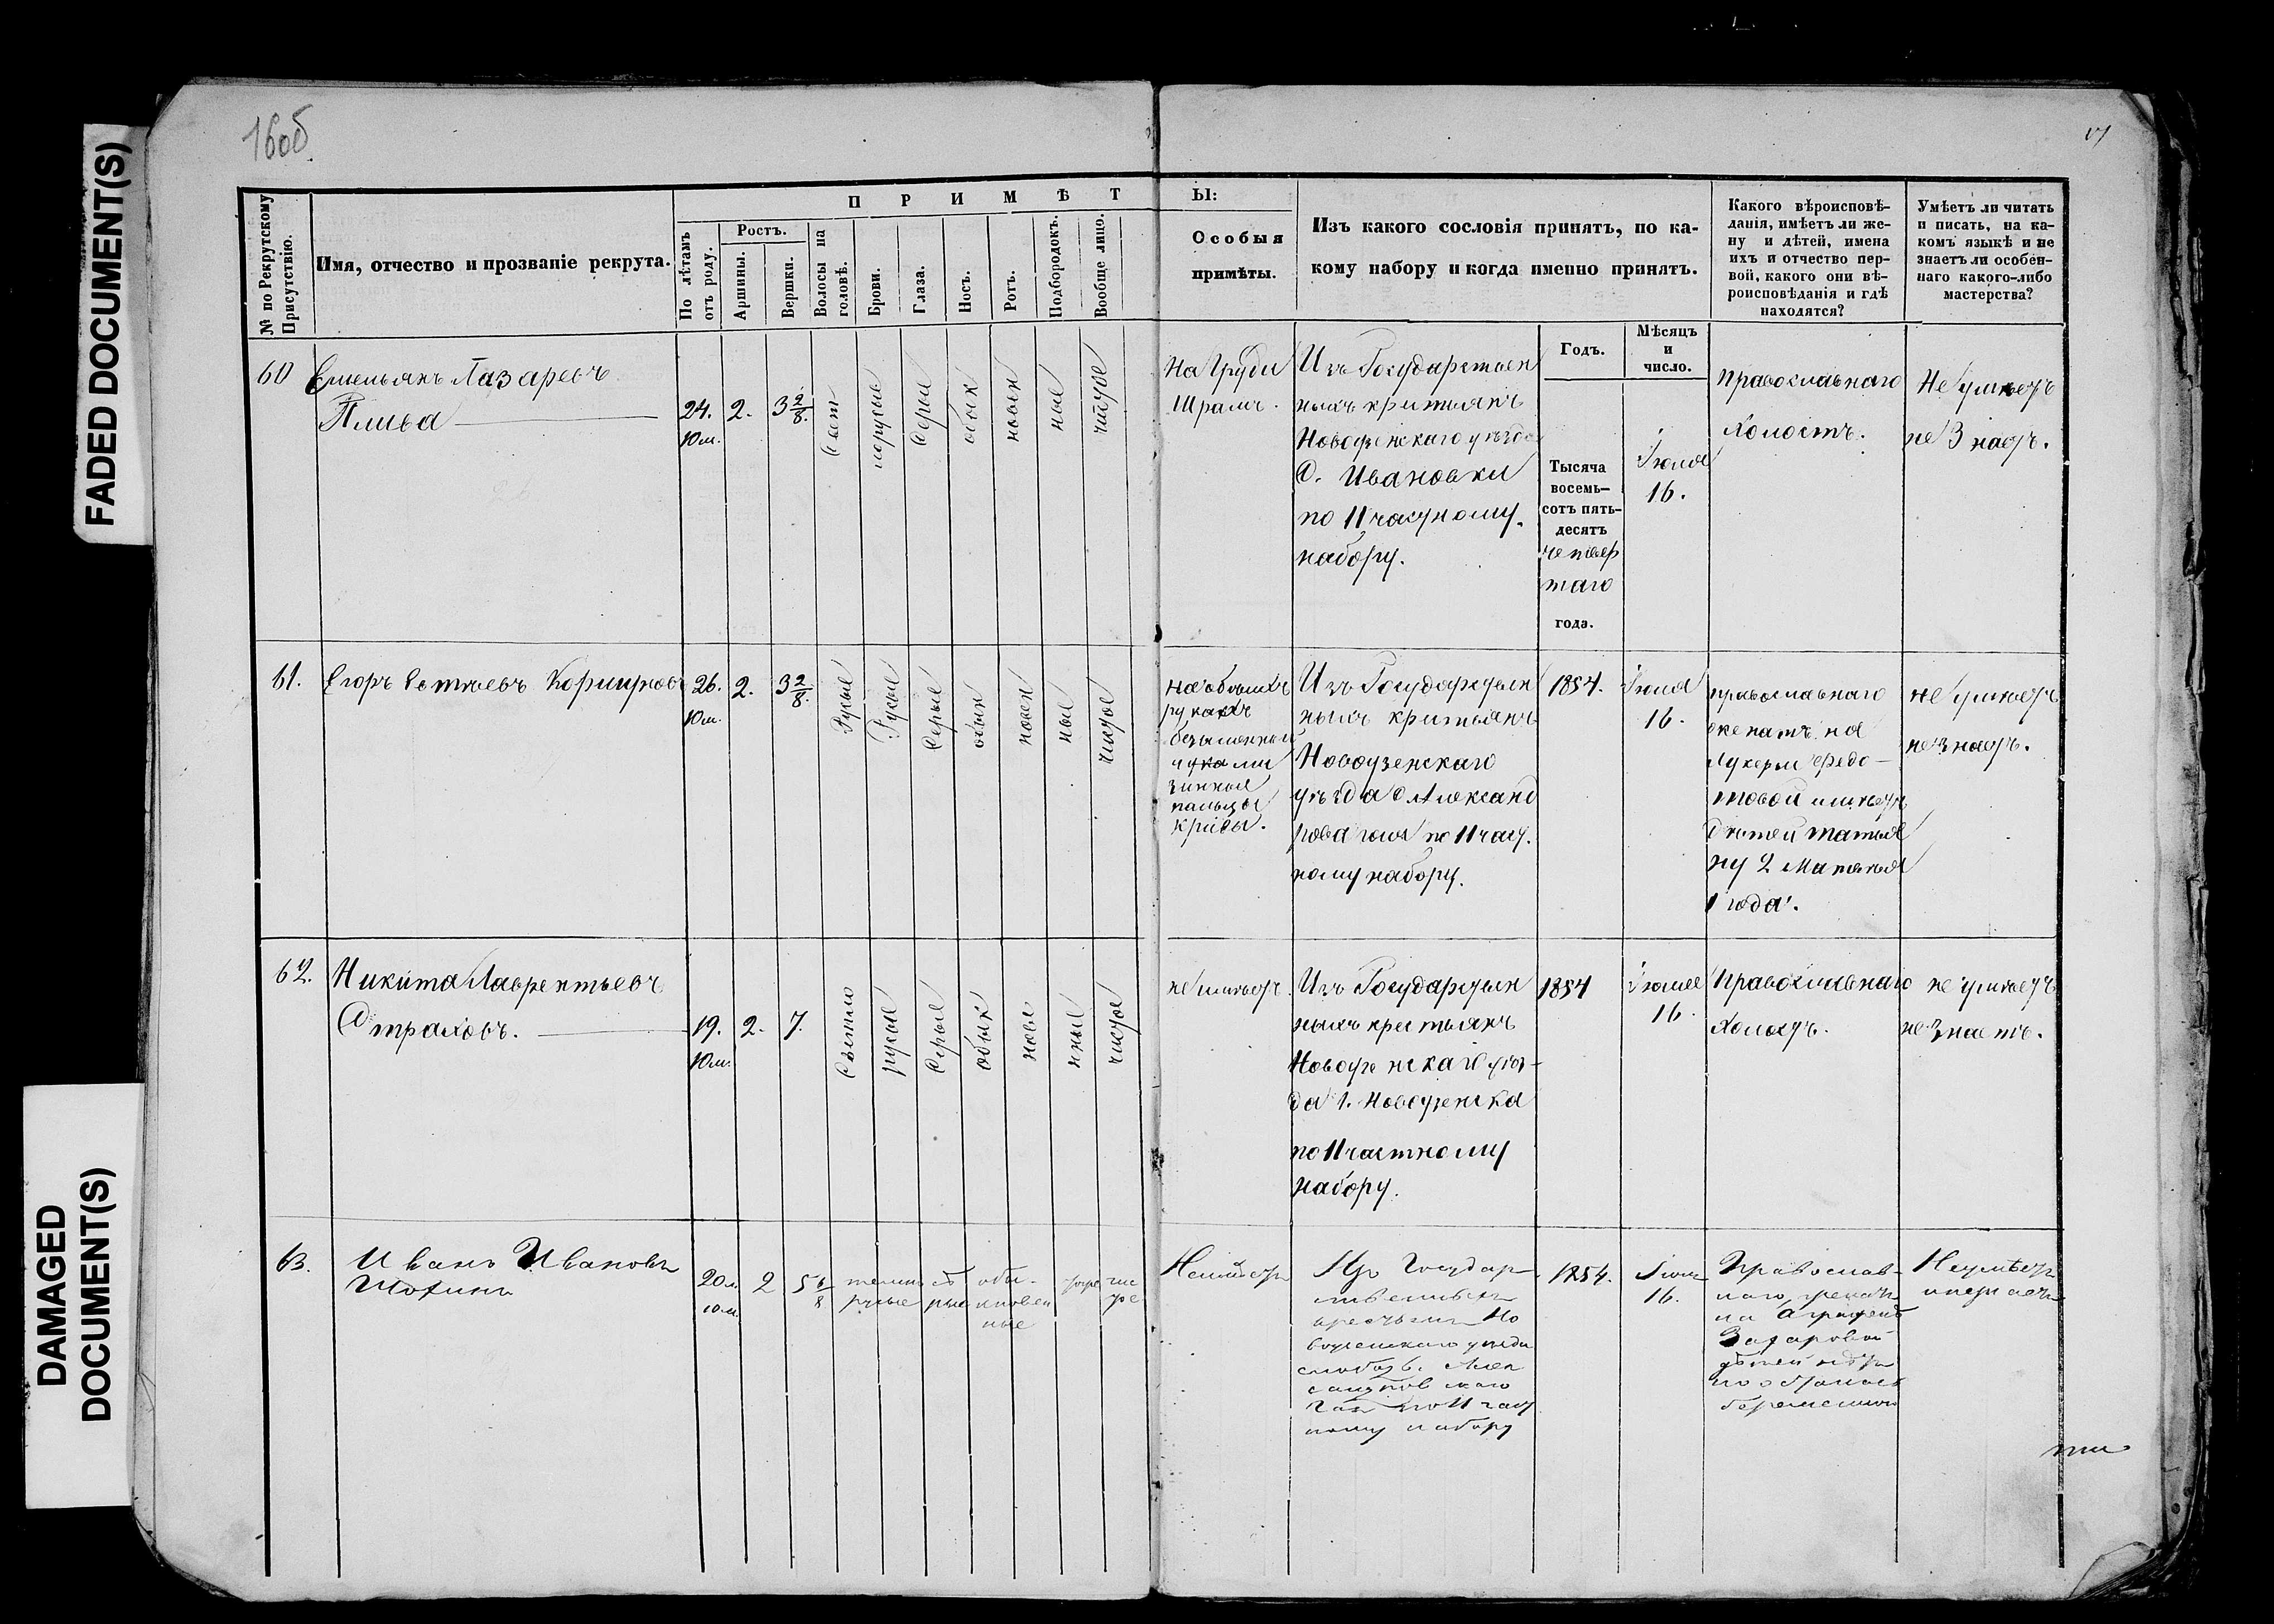 FADED DOCUMENT(S)
DAMAGED
DOCUMENT(S)
16об
П Р И М Ѣ Т Ы:
№ по Рекрутскому
Присутствію.
Имя, отчество и прозваніе рекрута.
По лѣтамъ
отъ роду.
Ростъ.
Аршины.
Вершки.
Волосы на
головѣ.
Брови.
Глаза.
Носъ.
Ротъ.
Подбородокъ.
Вообще лицо.
Особыя
примѣты.
Изъ какого сословія принятъ, по ка-
кому набору и когда именно принятъ.
Какого вѣроисповѣ-
данія, имѣетъ ли же-
ну и дѣтей, имена
ихъ и отчество пер-
вой, какого они вѣ-
роисповѣданія и гдѣ
находятся?
Умѣетъ ли читать
и писать, на ка-
комъ языкѣ и не
знаетъ ли особен-
наго какого-либо
мастерства?
Годъ.
Мѣсяцъ
и
число.
60
Емельянъ Лазаревъ
24.
2.
3 2/8.
Свет
лорусые
Серые
обык
новен
ные
чистое
На Груди
Шрамъ.
Изъ Государствен
ныхъ кристьянъ
Новоузенскаго уѣзда
С. Ивановки
по 11 частному
набору.
Тысяча
восемь-
сотъ пять-
десятъ
четвер
таго
года.
Іюля
16.
Православнаго
Холостъ.
Не умѣетъ
не знаетъ.
61.
Егоръ
26.
2.
3 2/8.
Русые
Русые
Серые
обык
новен
ные
чистое
на обѣихъ
рукахъ
пальцы
кривы.
Изъ Государствен
ныхъ кристьянъ
Новоузенскаго
уѣзда С Александ
рова гая по 11 част.
ному набору.
1854.
Іюля
16.
православнаго
женатъ на
Лукерьи Федо-
товой имѣетъ
дѣтей татья
ну 2 Матвѣя
1 года.
не умѣетъ
не знаетъ.
62.
Никита Лаврентьевъ
Страховъ.
19.
2.
7.
Светло
русые
Серые
обык
нове
нные
чистое
не имѣетъ.
Изъ Государствен
ныхъ крестьянъ
Новоузенскаго уѣз-
да г. Новоузенска
по 11 частному
набору.
1854
Іюля
16.
Православнаго
Холостъ.
не умѣетъ
не знаетъ.
63.
Иванъ Ивановъ
20 л.
2
5 6/8
темно
русые
сѣ
рые
обы-
кновен
ные
чис
тое
Неимѣетъ
Изъ Государ
ственныхъ
крестьянъ Но
воузенскаго уѣзда
Алек
сандровскаго
Гая по 11 част
ному набору
1854.
Іюля
16.
Православ-
наго, женатъ
на
Захаровой
дѣтей нѣтъ
беременною
Неумѣетъ
и незнаетъ